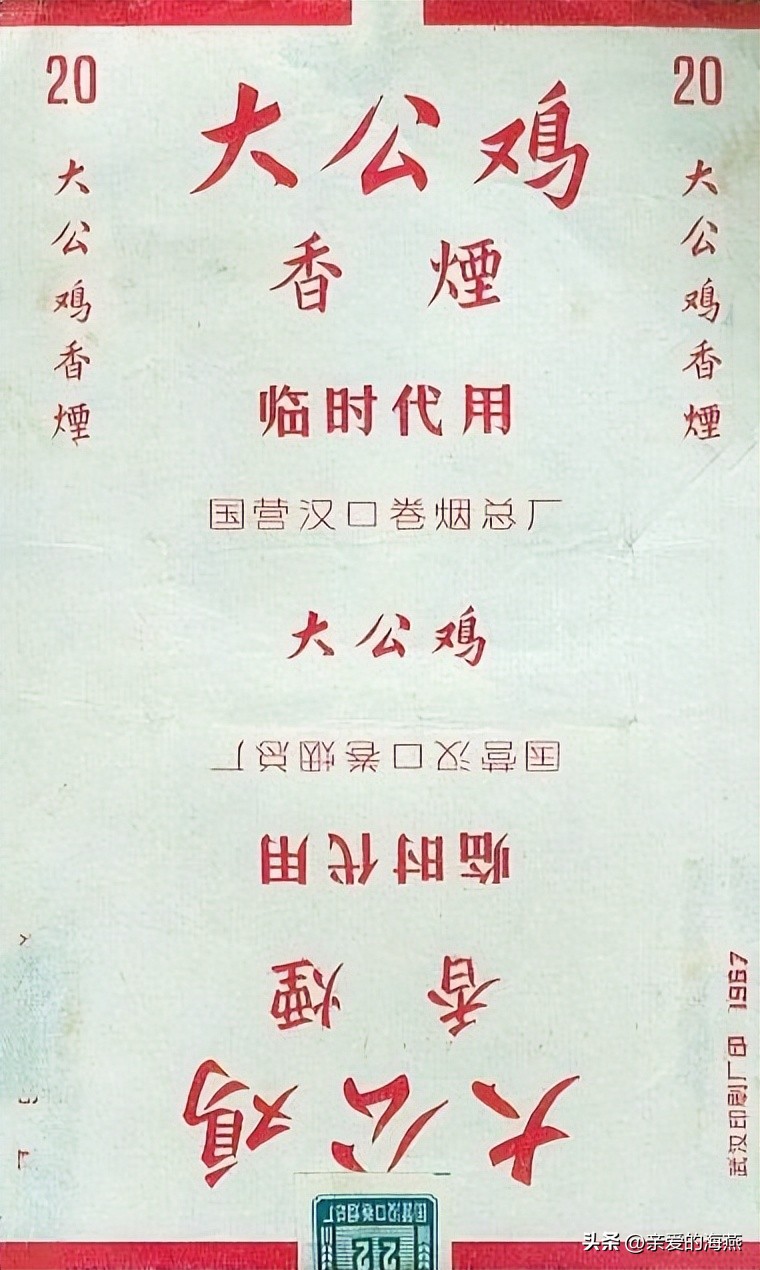 20
20
大公鸡
香煙
大公鸡香煙
大公鸡香煙
临时代用
国营汉口卷烟总厂
大公鸡
国营汉口卷烟总厂
临时代用
香煙
大公鸡
武汉印刷厂印 1967
国营汉口卷烟总厂
22
头条 @亲爱的海燕